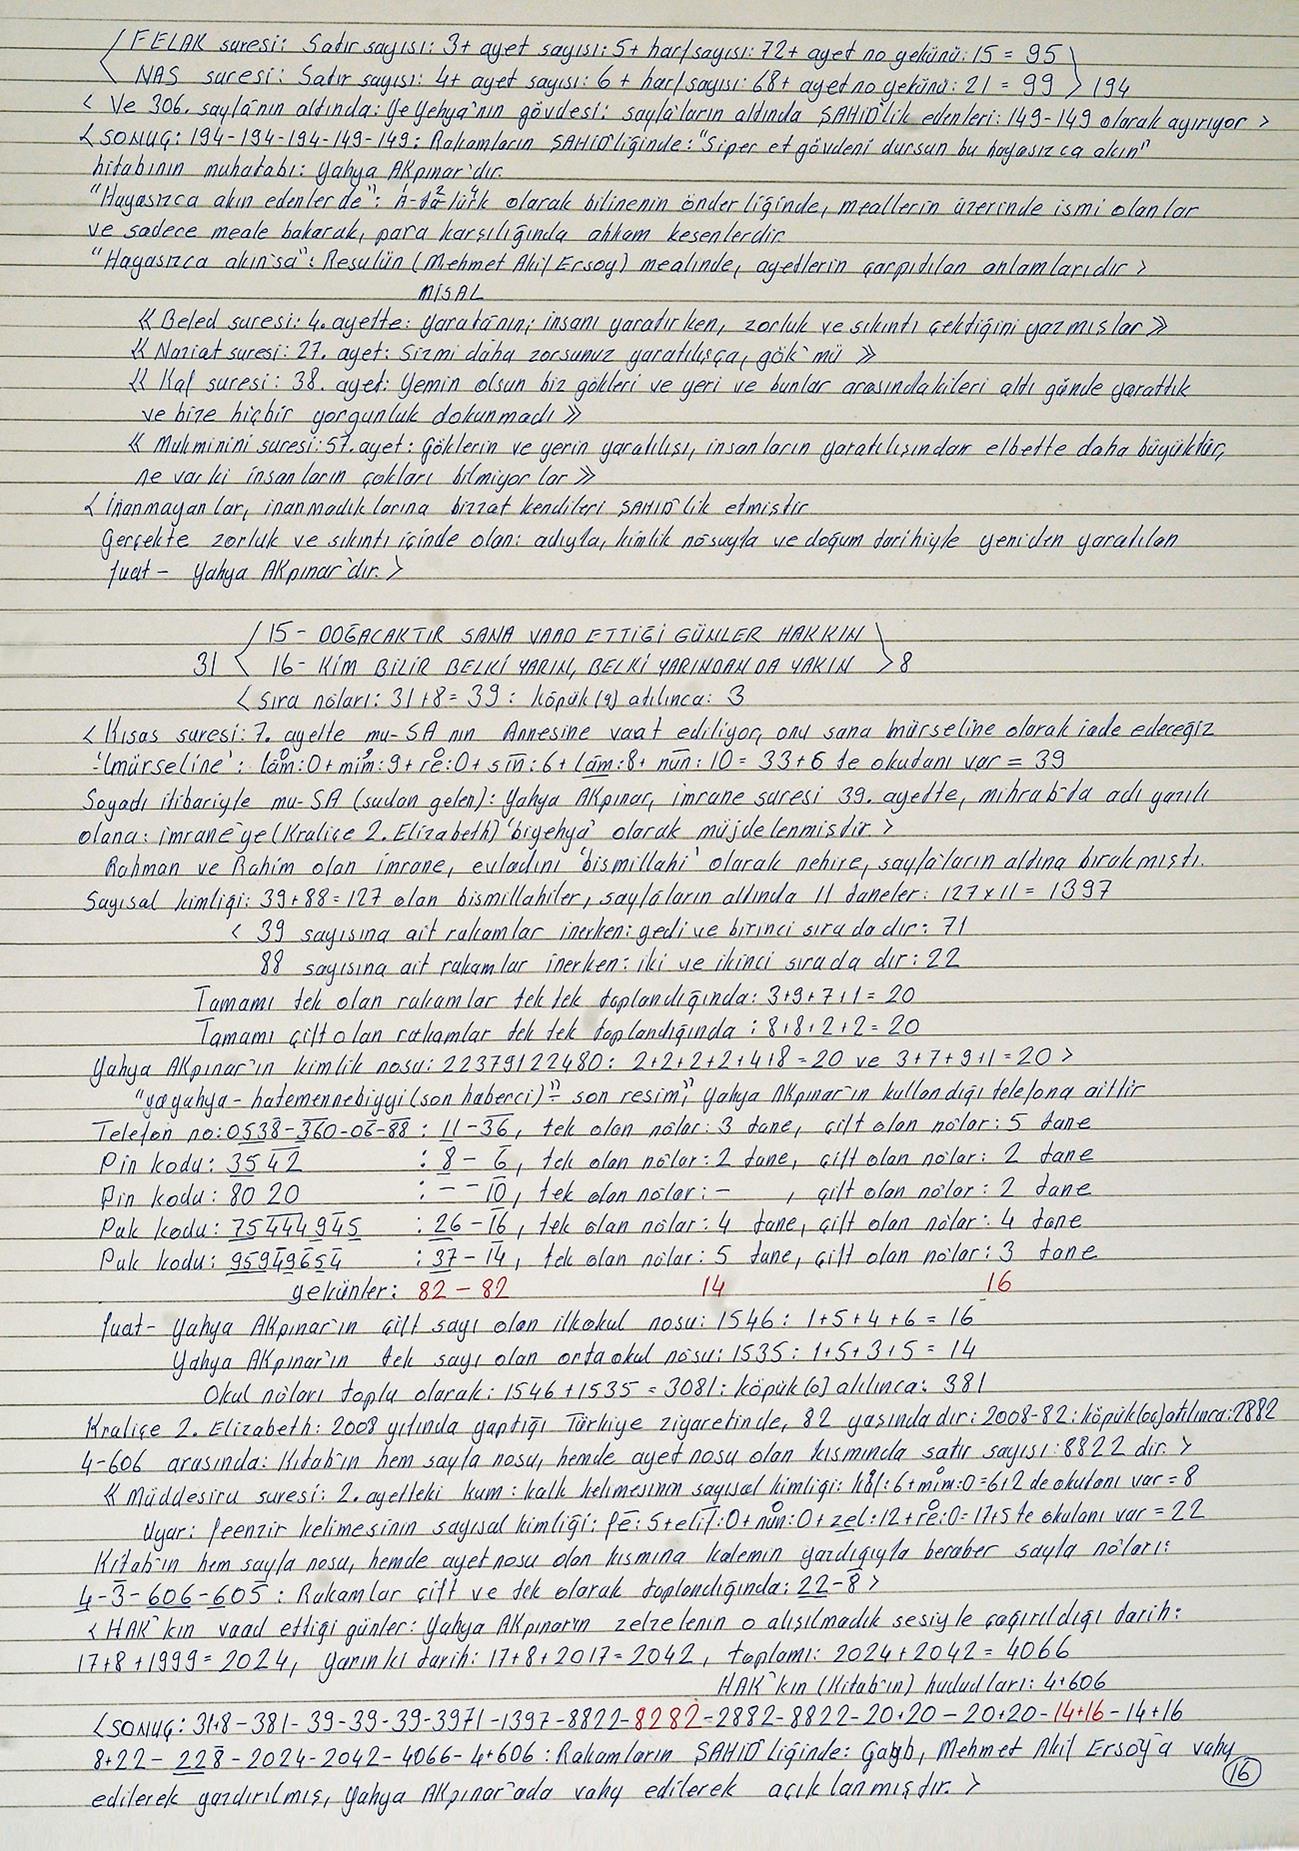 FELAK suresi: Satır sayısı: 3+ ayet sayısı: 5+ harf sayısı: 72+ ayet no yekünü: 15 = 95
NAS suresi: Satır sayısı: 4+ ayet sayısı: 6+ harf sayısı: 68+ ayet no yekünü: 21 = 99 > 194
< Ve 306. sayfa'nın altında: Ye Yehya'nın gövdesi: sayfa'ların altında ŞAHİD'lik edenleri: 149-149 olarak ayırıyor >
< SONUÇ: 194-194-194-149-149: Rakamların ŞAHİD'liğinde: "Siper et gövdeni dursun bu hayasızca akın"
hitabının muhatabı: Yahya AKpınar'dır.
"Hayasızca akın edenler de": A-ta-türk olarak bilinenin önderliğinde, meallerin üzerinde ismi olanlar
ve sadece meale bakarak, para karşılığında ahkam kesenlerdir.
"Hayasızca akın'sa": Resulün (Mehmet Akif Ersoy) mealinde, ayetlerin çarpıtılan anlamlarıdır >
MİSAL
<< Beled suresi: 4. ayette: Yarata'nın; insanı yaratırken, zorluk ve sıkıntı çektiğini yazmışlar >>
<< Naziat suresi: 27. ayet: Sizmi daha zorsunuz yaratılışça, gök'mü >>
<< Kaf suresi: 38. ayet: Yemin olsun biz gökleri ve yeri ve bunlar arasındakileri altı günde yarattık
ve bize hiçbir yorgunluk dokunmadı >>
<< Mukminini suresi: 57. ayet: Göklerin ve yerin yaratılışı, insanların yaratılışından elbette daha büyüktür,
ne var ki insanların çokları bilmiyorlar >>
< İnanmayanlar, inanmadıklarına bizzat kendileri ŞAHİD'lik etmiştir
Gerçekte zorluk ve sıkıntı içinde olan: adıyla, kimlik nosuyla ve doğum tarihiyle yeniden yaratılan
fuat- Yahya AKpınar'dır. >
15- DOĞACAKTIR SANA VAAD ETTİĞİ GÜNLER HAKKIN
31 < 16- KİM BİLİR BELKİ YARIN, BELKİ YARINDAN DA YAKIN > 8
< Sıra noları: 31+8= 39: köpük (9) atılınca: 3
< Kısas suresi: 7. ayette mu-SA nın Annesine vaat ediliyor, onu sana mürseline olarak iade edeceğiz
'Umürseline': lâm:0+mim:9+re:0+sin:6+lâm:8+nun:10= 33+6 te okutanı var = 39
Soyadı itibariyle mu-SA (sudan gelen): Yahya AKpınar, imrane suresi 39. ayette, mihrab'ta adı yazılı
olana: imrane'ye (Kraliçe 2. Elizabeth) 'biyehya' olarak müjdelenmiştir. >
Rahman ve Rahim olan imrane, evladını 'bismillahi' olarak nehire, sayfa'ların altına bırakmıştı.
Sayısal kimliği: 39+88=127 olan bismillahiler, sayfaların altında 11 taneler: 127x11 = 1397
< 39 sayısına ait rakamlar inerken: yedi ve birinci sıra da dır: 71
88 sayısına ait rakamlar inerken: iki ve ikinci sırada dır: 22
Tamamı tek olan rakamlar tek tek toplandığında: 3+9+7+1= 20
Tamamı çift olan rakamlar tek tek toplandığında: 8+8+2+2= 20
Yahya AKpınar'ın kimlik nosu: 22379122480: 2+2+2+2+4+8 = 20 ve 3+7+9+1 = 20 >
"yayahya- hatemennebiyyi (son haberci)"= son resim", Yahya AKpınar'ın kullandığı telefona aittir
Telefon no: 0538-360-06-88 : 11-36, tek olan nolar: 3 tane, çift olan nolar: 5 tane
Pin kodu: 3542 : 8-6, tek olan nolar: 2 tane, çift olan nolar: 2 tane
Pin kodu: 8020 : - - 10, tek olan nolar: - , çift olan nolar: 2 tane
Puk kodu: 75444945 : 26-16, tek olan nolar: 4 tane, çift olan nolar: 4 tane
Puk kodu: 95949654 : 37-14, tek olan nolar: 5 tane, çift olan nolar: 3 tane
yekünler: 82-82 14 16
fuat- Yahya AKpınar'ın çift sayı olan ilkokul nosu: 1546: 1+5+4+6 = 16
Yahya AKpınar'ın tek sayı olan ortaokul nosu: 1535: 1+5+3+5 = 14
Okul noları toplu olarak: 1546+1535 = 3081: köpük (0) atılınca: 381
Kraliçe 2. Elizabeth: 2008 yılında yaptığı Türkiye ziyaretinde, 82 yaşındadır: 2008-82: köpük(00) atılınca: 2882
4-606 arasında: Kitab'ın hem sayfa nosu, hemde ayet nosu olan kısmında satır sayısı: 8822 dir. >
<< Müddesiru suresi: 2. ayetteki kum: kalk kelimesinin sayısal kimliği: kâf:6+mim:0=6+2 de okutanı var = 8
Uyar: feenzir kelimesinin sayısal kimliği: fe: 5+elif:0+nun:0+zel:12+re:0=17+5 te okutanı var = 22
Kitab'ın hem sayfa nosu, hemde ayet nosu olan kısmına kalemin yazdığıyla beraber sayfa noları:
4-3-606-605: Rakamlar çift ve tek olarak toplandığında: 22-8 >
< HAK'kın vaad ettiği günler: Yahya AKpınar'ın zelzelenin o alışılmadık sesiyle çağırıldığı tarih:
17+8+1999= 2024, yarınki tarih: 17+8+2017= 2042, toplamı: 2024+2042 = 4066
HAK'kın (Kitab'ın) hududları: 4+606
< SONUÇ: 31+8-381-39-39-39-3971-1397-8822-8282-2882-8822-20+20-20+20-14+16-14+16
8+22- 228-2024-2042-4066-4+606: Rakamların ŞAHİD'liğinde: Gayb, Mehmet Akif Ersoy'a vahy
edilerek yazdırılmış, Yahya AKpınar'ada vahy edilerek açıklanmıştır. >
16